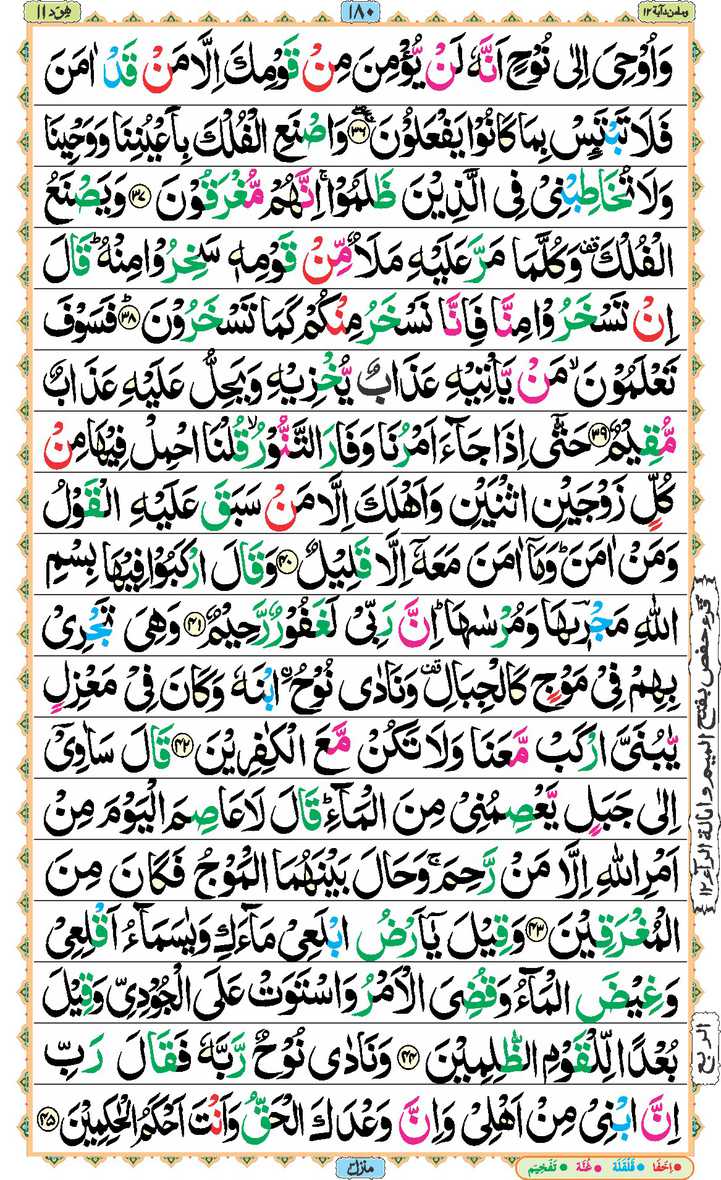 ومامن دآبۃ ۱۲
۱۸۰
ھود ۱۱
وَاُوْحِیَ اِلٰی نُوْحٍ اَنَّهٗ لَنْ یُّؤْمِنَ مِنْ قَوْمِكَ اِلَّا مَنْ قَدْ اٰمَنَ
فَلَا تَبْتَىِٕسْ بِمَا كَانُوْا یَفْعَلُوْنَ ۳۶ وَاصْنَعِ الْفُلْكَ بِاَعْیُنِنَا وَوَحْیِنَا
وَلَا تُخَاطِبْنِیْ فِی الَّذِیْنَ ظَلَمُوْا ۚ اِنَّهُمْ مُّغْرَقُوْنَ ۳۷ وَیَصْنَعُ
الْفُلْكَ ۫ وَكُلَّمَا مَرَّ عَلَیْهِ مَلَاٌ مِّنْ قَوْمِهٖ سَخِرُوْا مِنْهُ ؕ قَالَ
اِنْ تَسْخَرُوْا مِنَّا فَاِنَّا نَسْخَرُ مِنْكُمْ كَمَا تَسْخَرُوْنَ ؕ ۳۸ فَسَوْفَ
تَعْلَمُوْنَ ۙ مَنْ یَّاْتِیْهِ عَذَابٌ یُّخْزِیْهِ وَیَحِلُّ عَلَیْهِ عَذَابٌ
مُّقِیْمٌ ۳۹ حَتّٰۤی اِذَا جَآءَ اَمْرُنَا وَفَارَ التَّنُّوْرُ ۙ قُلْنَا احْمِلْ فِیْهَا مِنْ
كُلٍّ زَوْجَیْنِ اثْنَیْنِ وَاَهْلَكَ اِلَّا مَنْ سَبَقَ عَلَیْهِ الْقَوْلُ
وَمَنْ اٰمَنَ ؕ وَمَاۤ اٰمَنَ مَعَهٗۤ اِلَّا قَلِیْلٌ ۴۰ وَقَالَ ارْكَبُوْا فِیْهَا بِسْمِ
اللّٰهِ مَجْرٖىهَا وَمُرْسٰىهَا ؕ اِنَّ رَبِّیْ لَغَفُوْرٌ رَّحِیْمٌ ۴۱ وَهِیَ تَجْرِیْ
بِهِمْ فِیْ مَوْجٍ كَالْجِبَالِ ۫ وَنَادٰی نُوْحُ اِ۟بْنَهٗ وَكَانَ فِیْ مَعْزِلٍ
یّٰبُنَیَّ ارْكَبْ مَّعَنَا وَلَا تَكُنْ مَّعَ الْكٰفِرِیْنَ ۴۲ قَالَ سَاٰوِیْۤ
اِلٰی جَبَلٍ یَّعْصِمُنِیْ مِنَ الْمَآءِ ؕ قَالَ لَا عَاصِمَ الْیَوْمَ مِنْ
اَمْرِ اللّٰهِ اِلَّا مَنْ رَّحِمَ ۚ وَحَالَ بَیْنَهُمَا الْمَوْجُ فَكَانَ مِنَ
الْمُغْرَقِیْنَ ۴۳ وَقِیْلَ یٰۤاَرْضُ ابْلَعِیْ مَآءَكِ وَیٰسَمَآءُ اَقْلِعِیْ
وَغِیْضَ الْمَآءُ وَقُضِیَ الْاَمْرُ وَاسْتَوَتْ عَلَی الْجُوْدِیِّ وَقِیْلَ
بُعْدًا لِّلْقَوْمِ الظّٰلِمِیْنَ ۴۴ وَنَادٰی نُوْحٌ رَّبَّهٗ فَقَالَ رَبِّ
اِنَّ ابْنِیْ مِنْ اَهْلِیْ وَاِنَّ وَعْدَكَ الْحَقُّ وَاَنْتَ اَحْكَمُ الْحٰكِمِیْنَ ۴۵
حفص بفتح المیم و امالۃ الرآء ۱۲
الربع
منزل ۳
اِخفَا قَلْقَلَة غُنَّة تَفْخِيْم